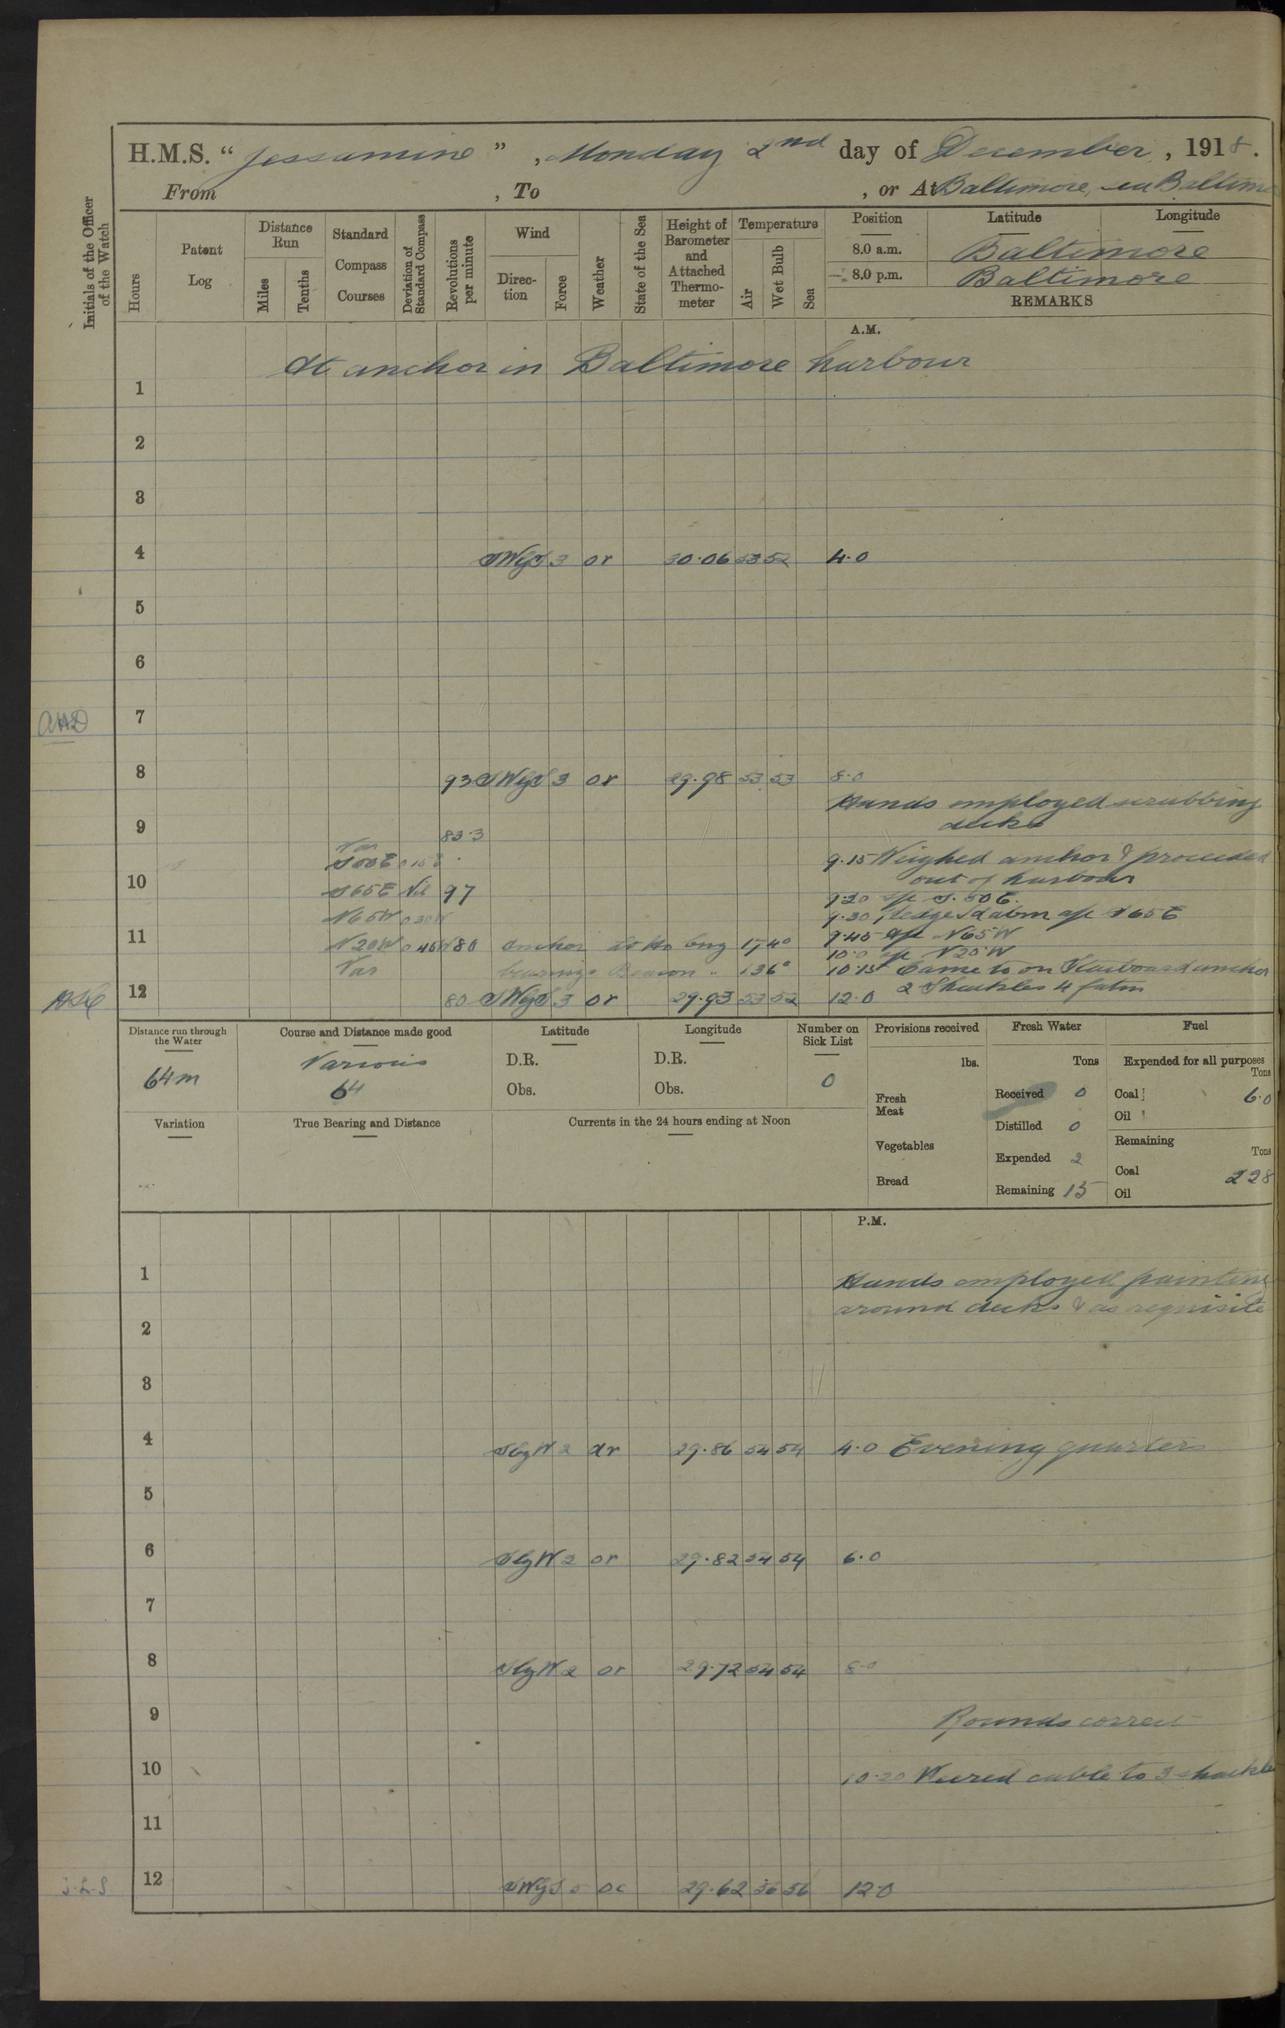 H.M.S. “ Jessamine ” , Monday 2nd day of December , 1918 .
From , To , or At Baltimore,
Initials of the Officer of the Watch
Hours
Patent Log
Distance Run
Miles
Tenths
Standard Compass Courses
Deviation of Standard Compass
Revolutions per minute
Wind
Direc-tion
Force
Weather
State of the Sea
Height of Barometer and Attached Thermo-meter
Temperature
Air
Wet Bulb
Sea
Position Latitude Longitude
8.0 a.m. Baltimore
8.0 p.m. Baltimore
REMARKS
A.M.
At anchor in Baltimore harbour
1
2
3
4 SWbyS 3 or 30.06 53 52 4.0
5
6
7
8 93 SWbyS 3 or 29.98 53 53 8.0
Hands employed scrubbing
decks
9 83.3
Var
S 50 E 0 15 E 9.15 Weighed anchor & proceeded
out of harbour
10 S 65 E Nil 97
9.20 a/c S. 50 E.
N 65 W 0 30 W 9.30 a/c S 65 E
11 N 20 W 0 45 W 80 anchor brg 174°
9.45 a/c N 65 W
10.0 a/c N 20 W
Var bearings Beacon " 136° 10.15 Came to on Starboard anchor
2 Shackles 4 fatm
12 80 SWbyS 3 or 29.93 53 52 12.0
Distance run through the Water
64m
Course and Distance made good
Various
64
Latitude
D.R.
Obs.
Longitude
D.R.
Obs.
Number on Sick List
0
Provisions received
lbs.
Fresh Meat
Vegetables
Bread
Fresh Water
Tons
Received 0
Distilled 0
Expended 2
Remaining 15
Fuel
Expended for all purposes
Tons
Coal 6.0
Oil
Remaining
Tons
Coal 228
Oil
Variation
True Bearing and Distance
Currents in the 24 hours ending at Noon
P.M.
1 Hands employed painting
around decks & as requisite
2
3
4 SbyW 2 or 29.86 54 54 4.0 Evening quarters
5
6 SbyW 2 or 29.82 54 54 6.0
7
8 SbyW 2 or 29.72 54 54 8.0
9 Rounds correct
10 10.20 Veered cable to 3 shackles
11
12 SWbyS 5 oc 29.62 56 56 12.0